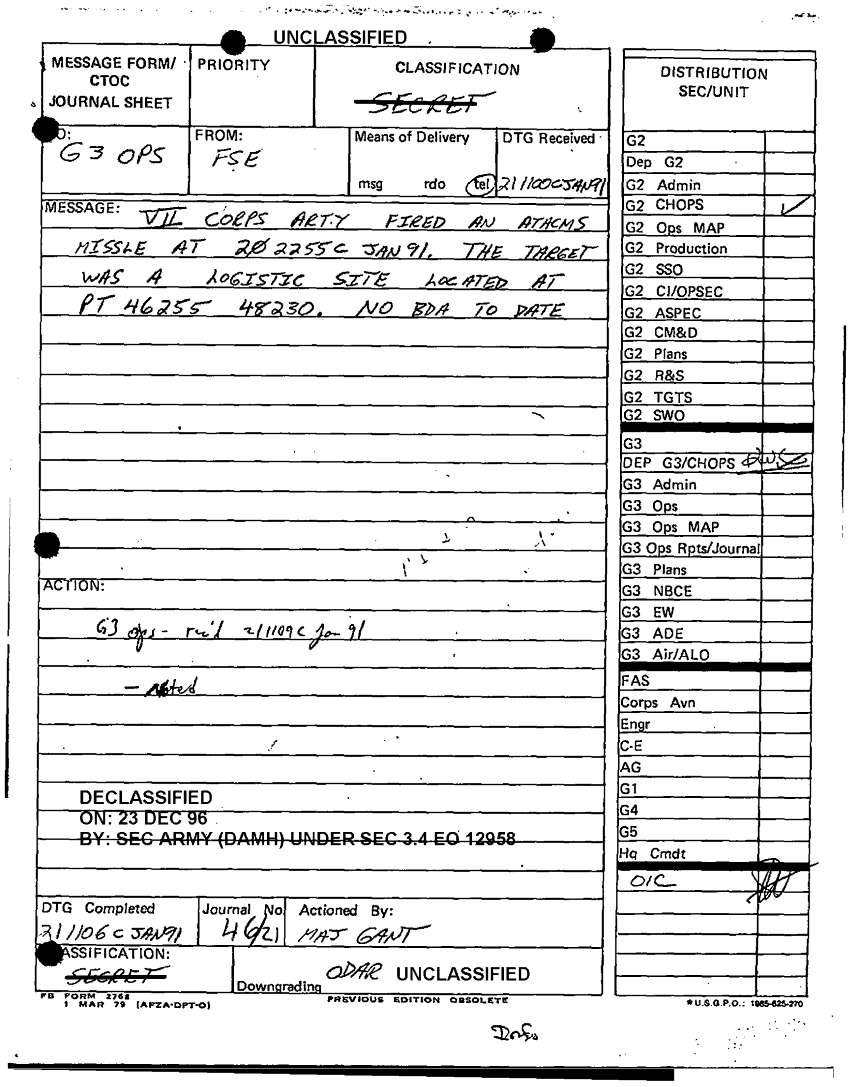 UNCLASSIFIED
MESSAGE FORM/
CTOC
JOURNAL SHEET
PRIORITY
CLASSIFICATION
SECRET
TO:
G3 OPS
FROM:
FSE
Means of Delivery
msg rdo tel
DTG Received
211100CJAN91
MESSAGE: VII CORPS ARTY FIRED AN ATACMS
MISSLE AT 202255C JAN 91. THE TARGET
WAS A LOGISTIC SITE LOCATED AT
PT 46255 48230. NO BDA TO DATE
ACTION:
G3 ops - rec'd 211109C Jan 91
- noted
DECLASSIFIED
ON: 23 DEC 96
BY: SEC ARMY (DAMH) UNDER SEC 3.4 EO 12958
DTG Completed
211106C JAN91
Journal No.
46/21
Actioned By:
MAJ GANT
CLASSIFICATION:
SECRET
Downgrading
OADR UNCLASSIFIED
FB FORM 2768
1 MAR 79 (AFZA-DPT-O)
PREVIOUS EDITION OBSOLETE
DISTRIBUTION
SEC/UNIT
G2
Dep G2
G2 Admin
G2 CHOPS
G2 Ops MAP
G2 Production
G2 SSO
G2 CI/OPSEC
G2 ASPEC
G2 CM&D
G2 Plans
G2 R&S
G2 TGTS
G2 SWO
G3
DEP G3/CHOPS
G3 Admin
G3 Ops
G3 Ops MAP
G3 Ops Rpts/Journal
G3 Plans
G3 NBCE
G3 EW
G3 ADE
G3 Air/ALO
FAS
Corps Avn
Engr
C-E
AG
G1
G4
G5
Hq Cmdt
OIC
*U.S.G.P.O.: 1985-625-270